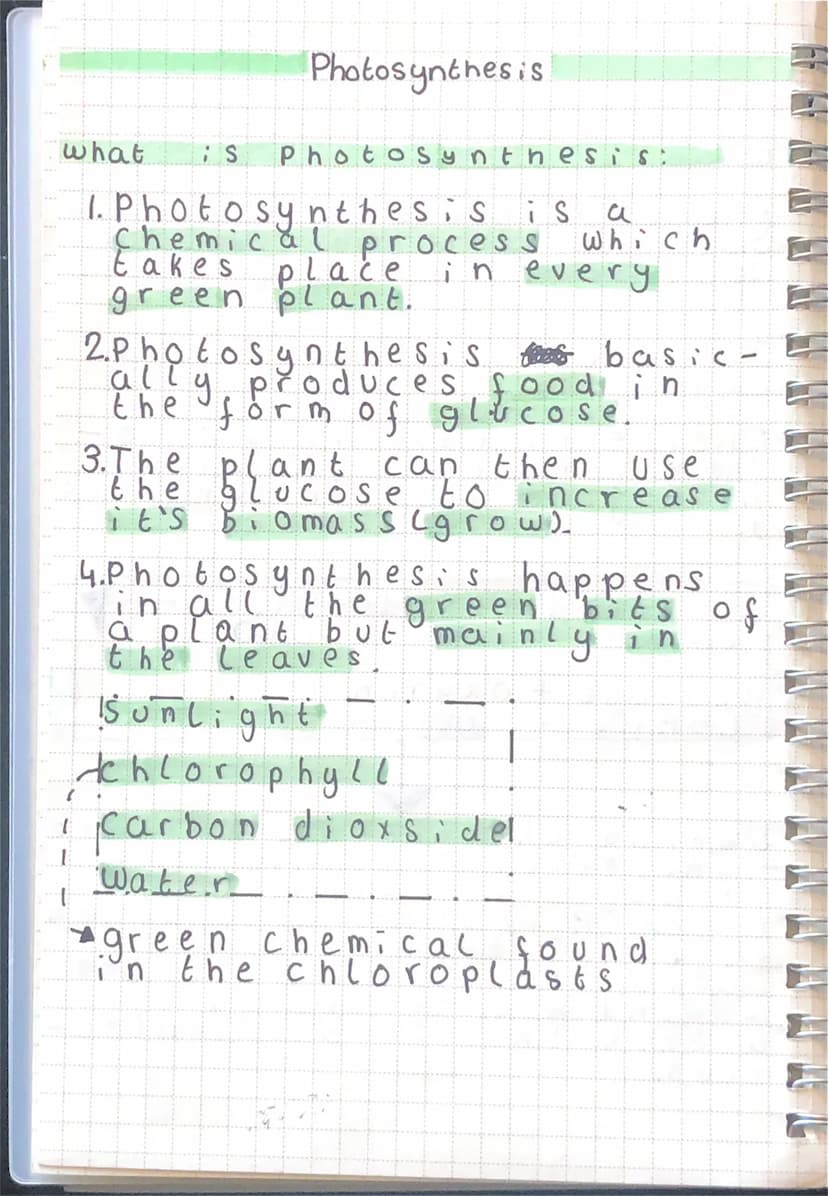 Photosynthesis
what is photosynthesis:
1. Photosynthesis is a
chemical process which
takes place in every
green plant.
2. Photosynthesis basic-
ally produces food in
the form of glucose.
3. The plant can then use
the glucose to increase
it's biomass (grow).
4. Photosynthesis happens
in all the green bits of
a plant but mainly in
the leaves.
Sunlight
chlorophyll
carbon dioxside
water
green chemical found
in the chloroplasts